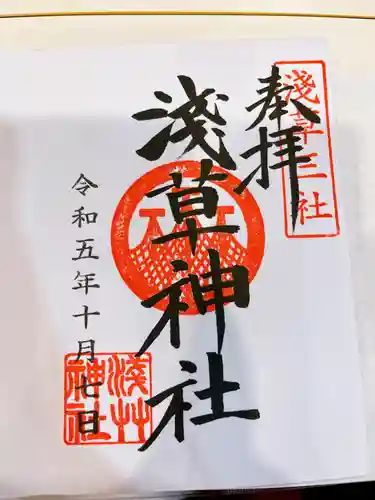 奉拝
淺草三社
淺草神社
令和五年十月七日
淺艸
神社